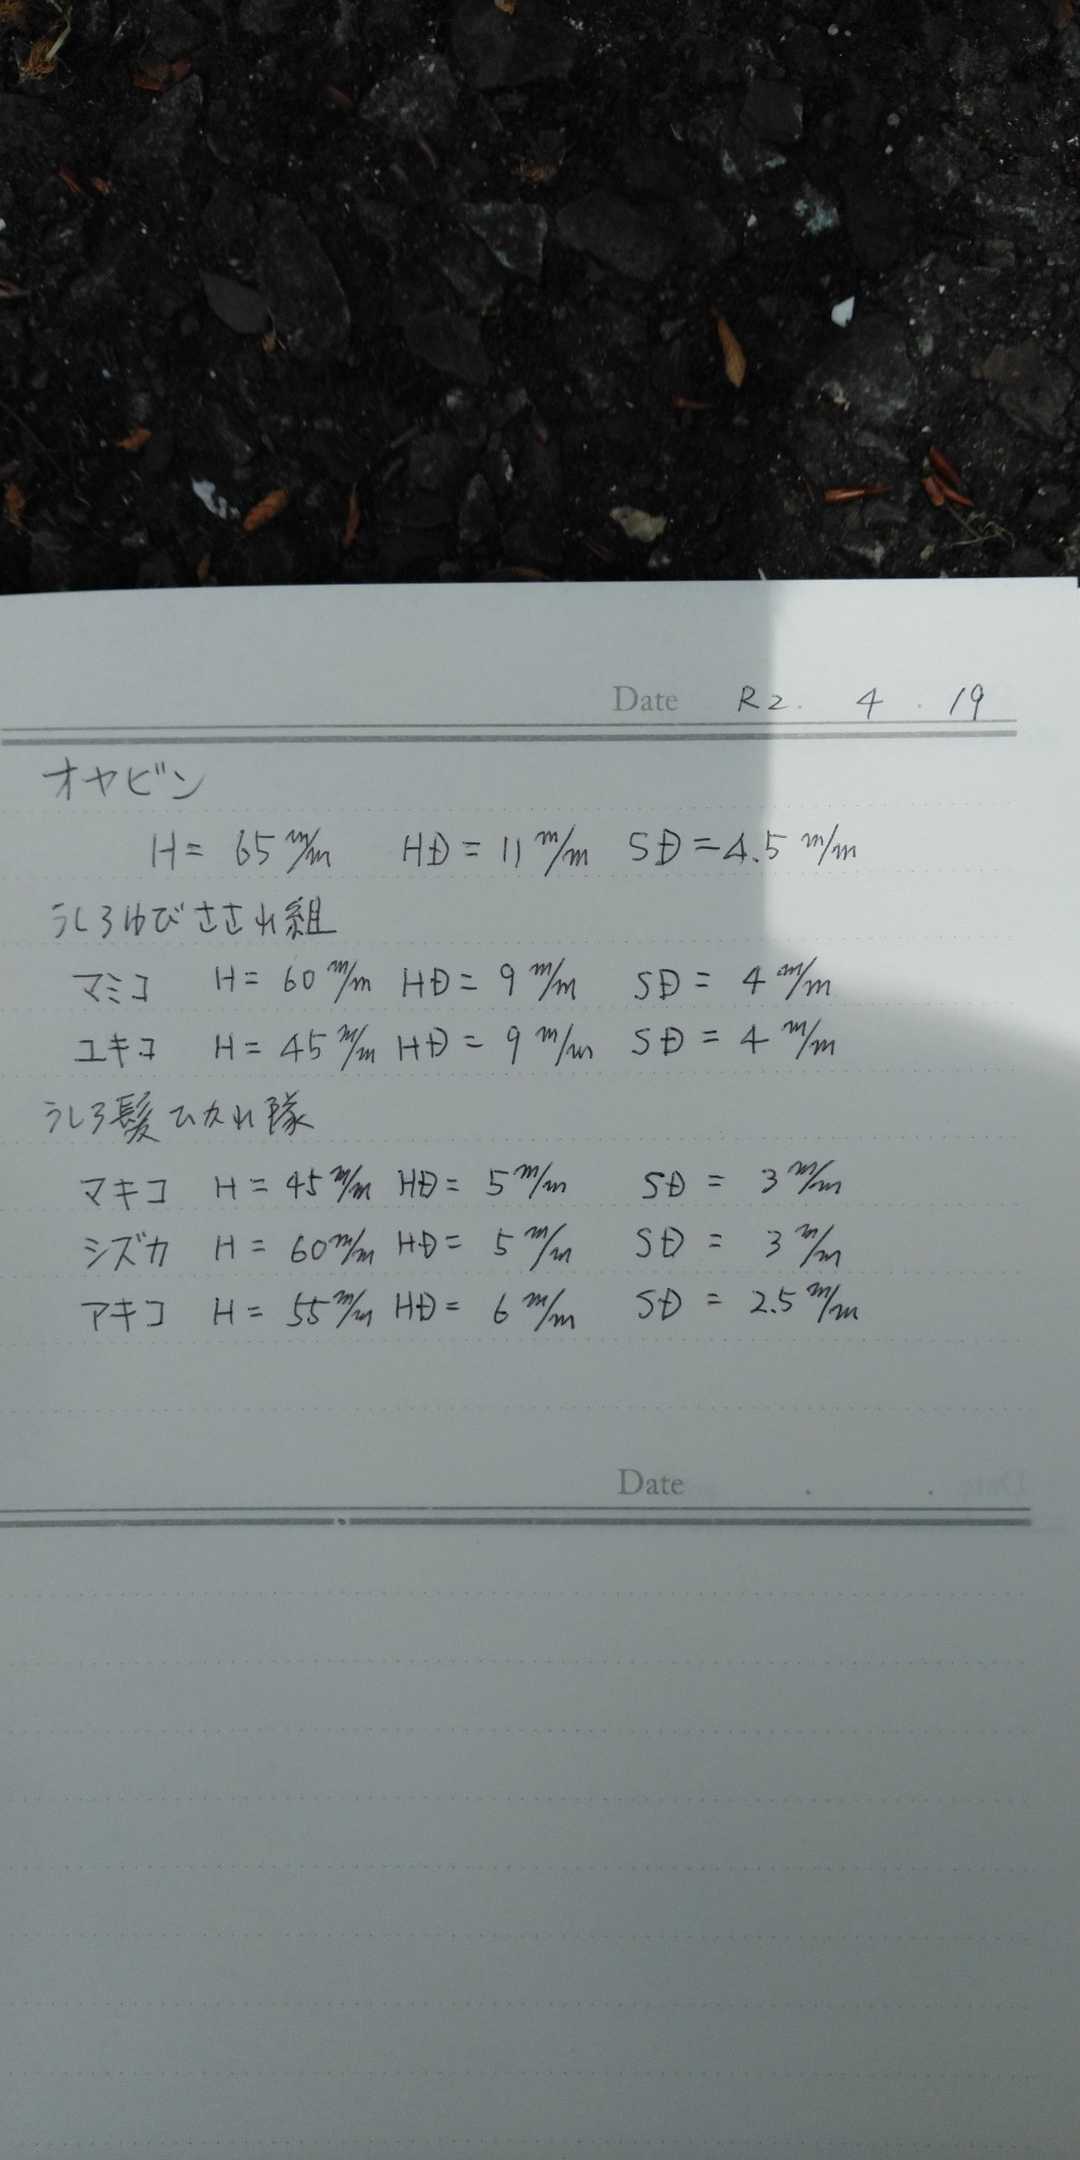 Date R2. 4. 19
オヤビン
H= 65 m/m HD= 11 m/m SD=4.5 m/m
うしろゆびさされ組
マミコ H= 60 m/m HD= 9 m/m SD= 4 m/m
ユキコ H= 45 m/m HD= 9 m/m SD= 4 m/m
うしろ髪ひかれ隊
マキコ H= 45 m/m HD= 5 m/m SD= 3 m/m
シズカ H= 60 m/m HD= 5 m/m SD= 3 m/m
アキコ H= 55 m/m HD= 6 m/m SD= 2.5 m/m
Date . .